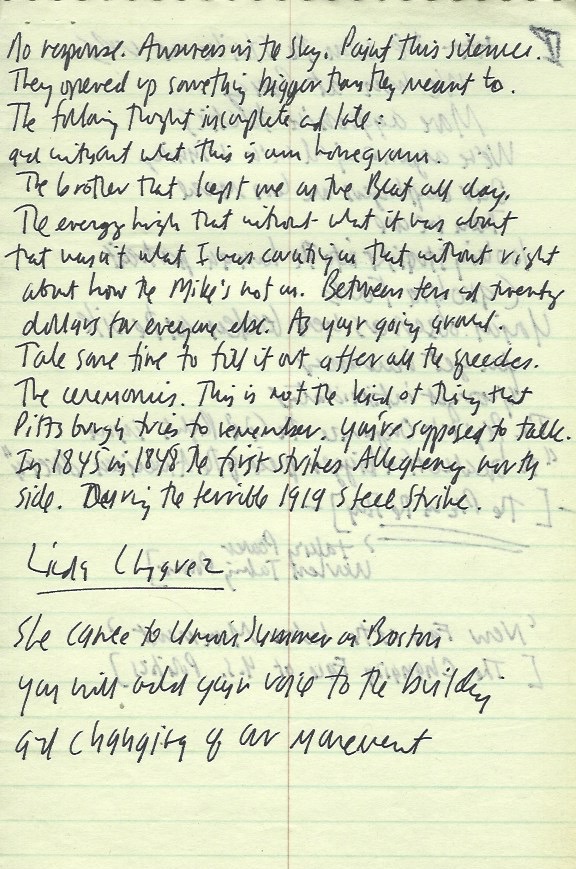 No response. Answers in the sky. Paint this silence.
They opened up something bigger than they meant to.
The following thought incomplete and late:
and without what this is um honeygramm.
The brother that kept me on the Beat all day.
The energy high that without what it was about
that wasn't what I was counting on that without right
about how the Mike's not on. Between ten and twenty
dollars for everyone else. As your going around.
Take some time to fill it out after all the speeches.
The ceremonies. This is not the kind of thing that
Pittsburgh tries to remember. You're supposed to talk.
In 1845 in 1848 the first strikes Allegheny north
side. During the terrible 1919 Steel Strike.
Linda Chavez
She came to Union Summer in Boston
you will add your voice to the building
and changing of our movement